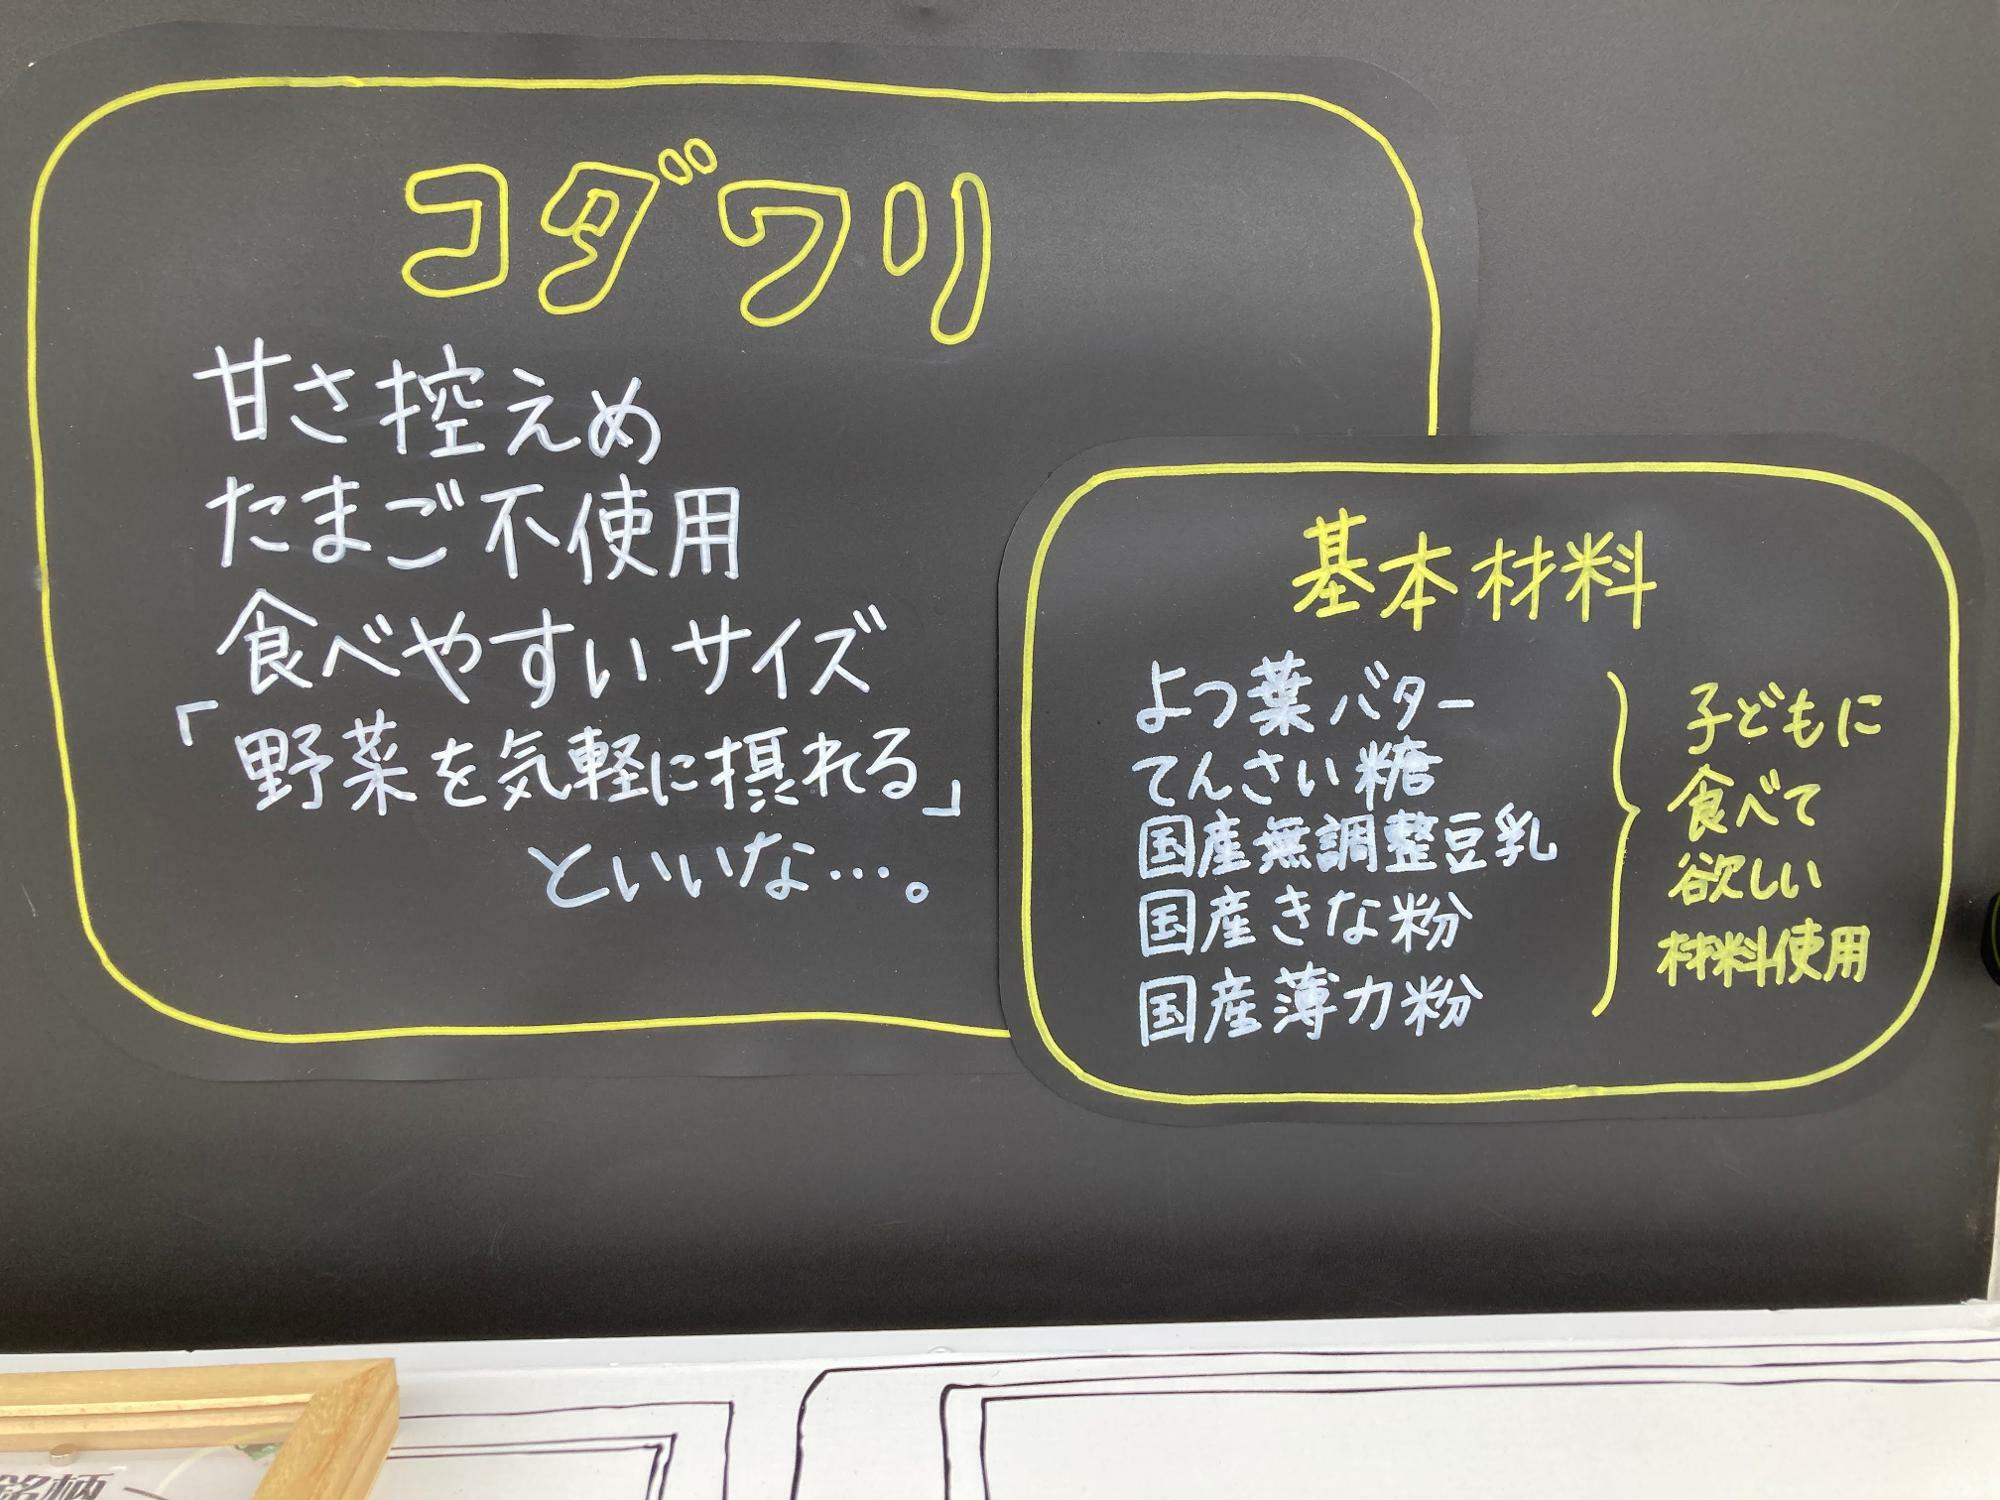 コダワリ
甘さ控えめ
たまご不使用
食べやすいサイズ
「野菜を気軽に摂れる」
といいな…。
基本材料
よつ葉バター
てんさい糖
国産無調整豆乳
国産きな粉
国産薄力粉
子どもに
食べて
欲しい
材料使用
銘柄